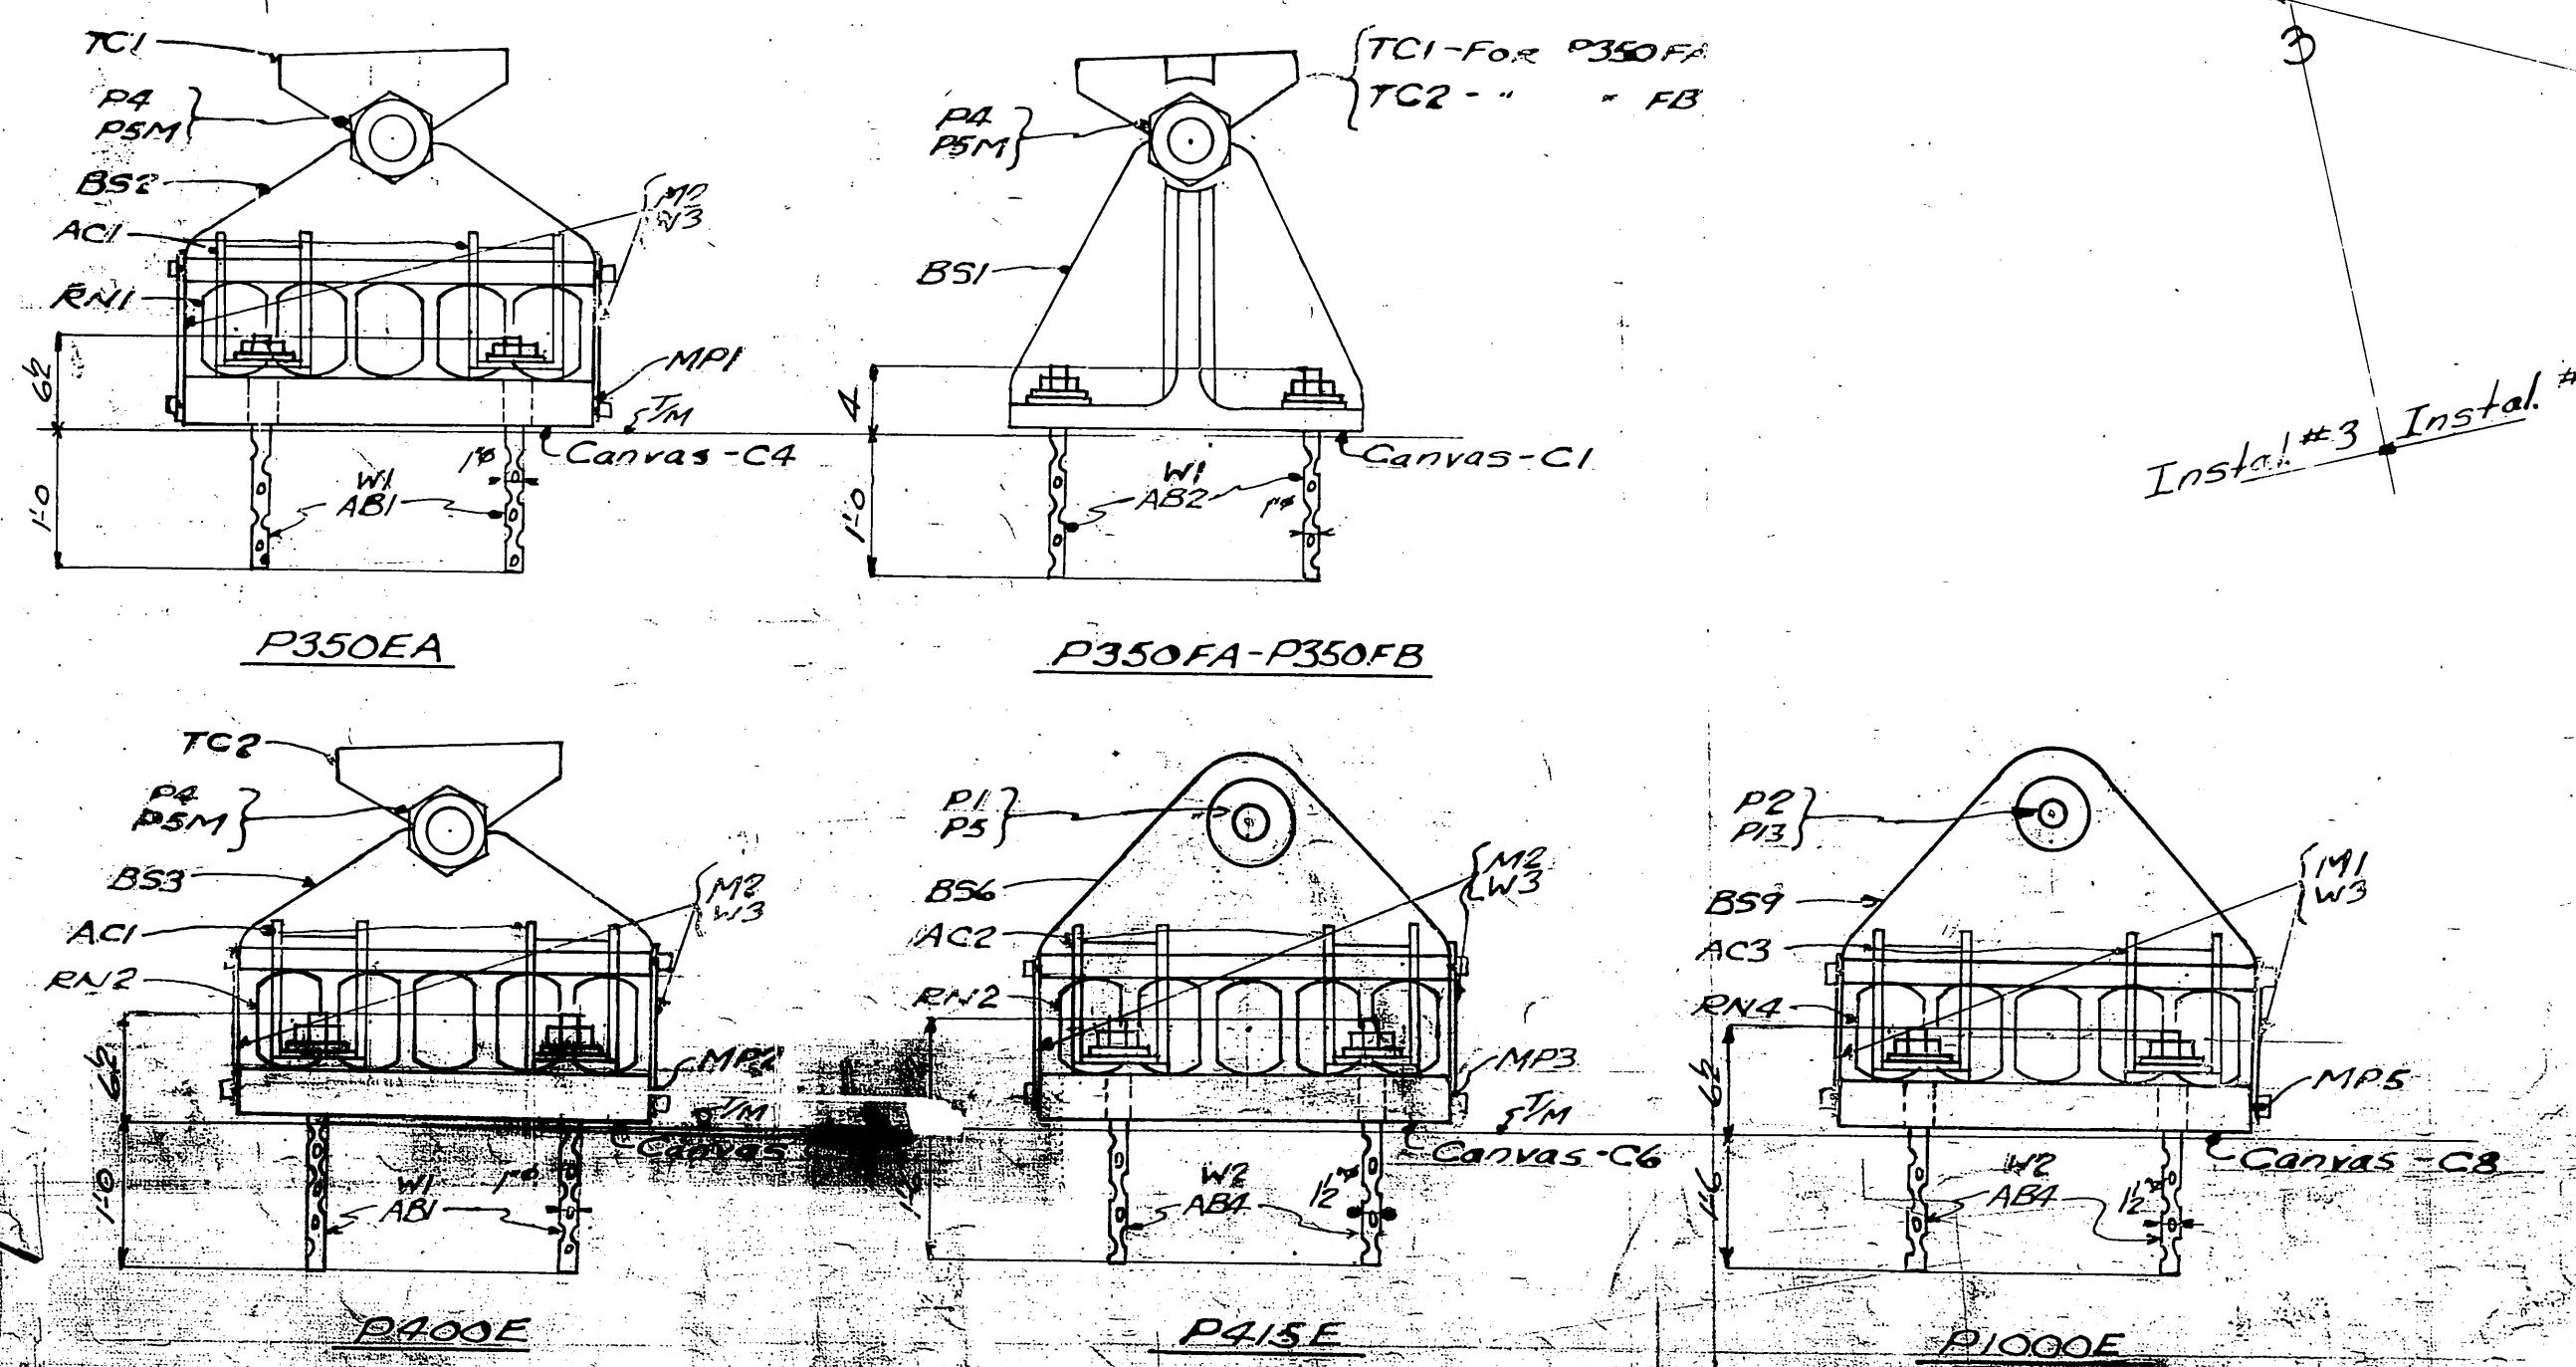 TC1
P4
P5M
BS2
AC1
RN1
M2
W3
MP1
T/M
Canvas-C4
6½
1'-0
1"ø
W1
AB1
P350EA
TC1-FOR P350FA
TC2 - " " FB
P4
P5M
BS1
4
1'-0
Canvas-C1
W1
AB2
1"ø
P350FA-P350FB
3
Instal. #3
Instal. #
TC2
P4
P5M
BS3
AC1
RN2
M2
W3
MP2
T/M
Canvas
6½
1'-0
1"ø
W1
AB1
P400E
P1
P5
BS6
AC2
RN2
M2
W3
MP3
T/M
Canvas-C6
W2
AB4
1½"ø
P415E
P2
P13
BS9
AC3
RN4
M1
W3
MP5
Canvas-C8
6½
1'-6
W2
AB4
1½"ø
P1000E